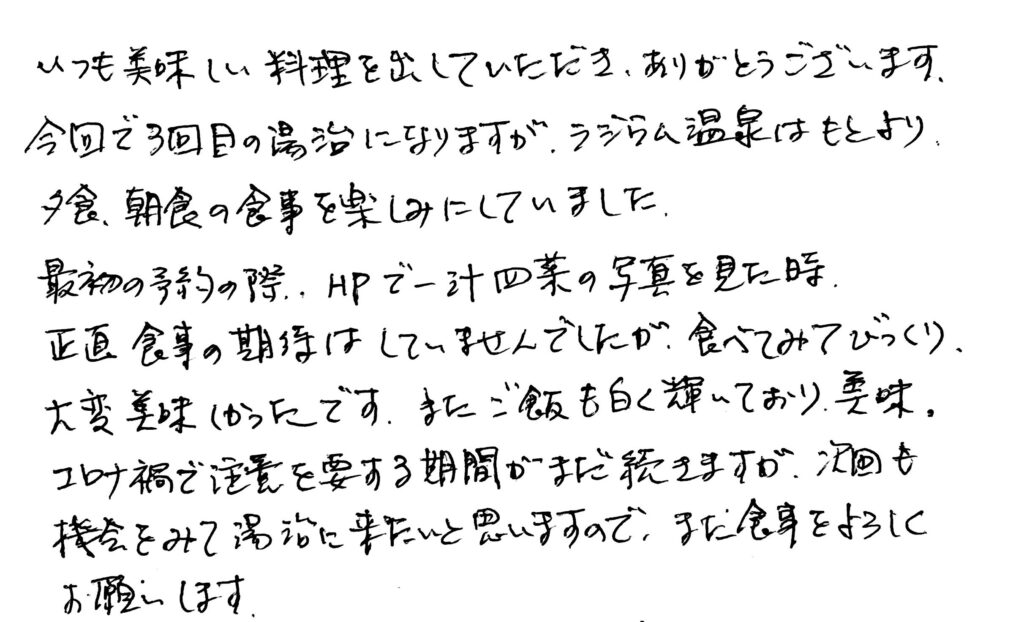 いつも美味しい料理を出していただき、ありがとうございます。
今回で3回目の湯治になりますが、ラジウム温泉はもとより、
夕食、朝食の食事を楽しみにしていました。
最初の予約の際、HPで一汁四菜の写真を見た時、
正直食事の期待はしていませんでしたが、食べてみてびっくり、
大変美味しかったです。またご飯も白く輝いており、美味。
コロナ禍で注意を要する期間がまだ続きますが、次回も
機会をみて湯治に来たいと思いますので、また食事をよろしく
お願いします。